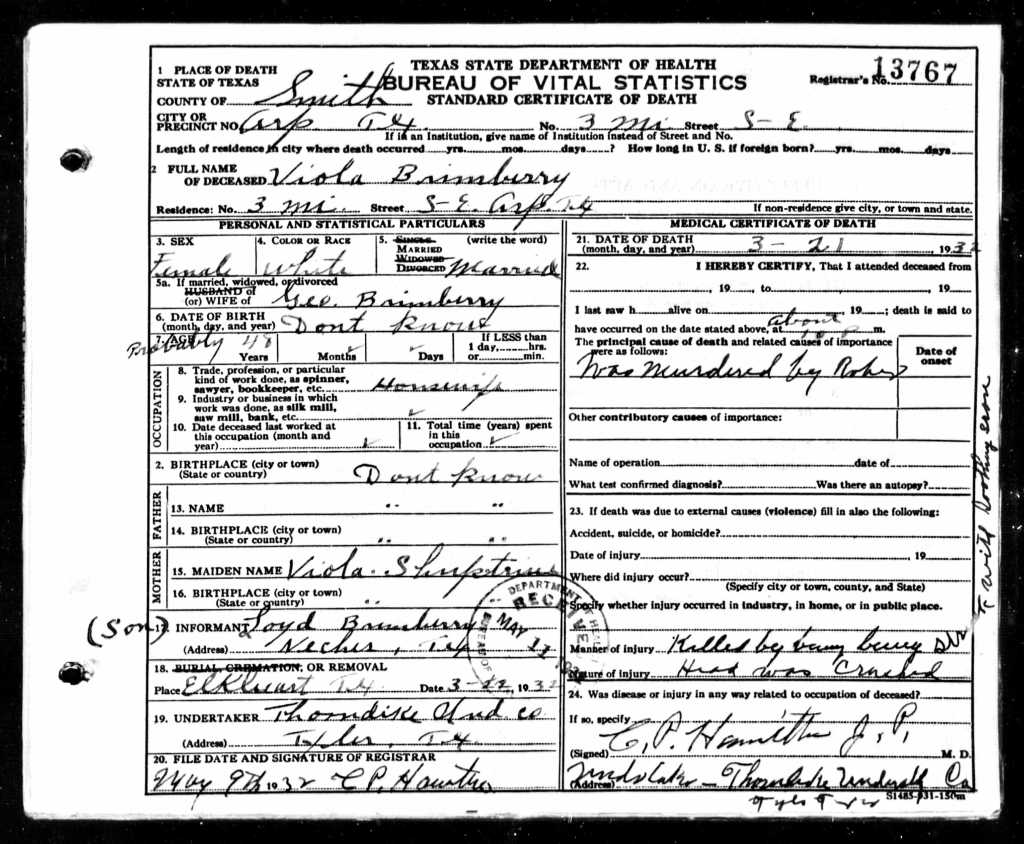 TEXAS STATE DEPARTMENT OF HEALTH
BUREAU OF VITAL STATISTICS
STANDARD CERTIFICATE OF DEATH
Registrar's No. 13767
1 PLACE OF DEATH
STATE OF TEXAS
COUNTY OF Smith
CITY OR
PRECINCT NO. Arp Tx. No. 3 Mi Street S-E.
If in an Institution, give name of Institution instead of Street and No.
Length of residence in city where death occurred yrs. mos. days ? How long in U. S. if foreign born? yrs. mos. days
2 FULL NAME
OF DECEASED Viola Brimberry
Residence: No. 3 mi. Street S-E. Arp. Tx
If non-residence give city, or town and state.
PERSONAL AND STATISTICAL PARTICULARS
3. SEX
Female
4. COLOR OR RACE
White
5. SINGLE (write the word)
MARRIED
WIDOWED
DIVORCED Married
5a. If married, widowed, or divorced
HUSBAND of
(or) WIFE of Geo. Brimberry
6. DATE OF BIRTH
(month, day, and year) Dont Know
7. AGE
Probably 48
Years Months Days
If LESS than
1 day, hrs.
or min.
OCCUPATION
8. Trade, profession, or particular
kind of work done, as spinner,
sawyer, bookkeeper, etc. Housewife
9. Industry or business in which
work was done, as silk mill,
saw mill, bank, etc.
10. Date deceased last worked at
this occupation (month and
year)
11. Total time (years) spent
in this
occupation
2. BIRTHPLACE (city or town)
(State or country) Dont know
FATHER
13. NAME " "
14. BIRTHPLACE (city or town)
(State or country) " "
MOTHER
15. MAIDEN NAME Viola
16. BIRTHPLACE (city or town)
(State or country) " "
(Son) 17. INFORMANT Loyd Brimberry
(Address) Neches, Tex
18. BURIAL, CREMATION, OR REMOVAL
Place Elkheart Tx Date 3-22, 1932
19. UNDERTAKER Thorndike Und. co
(Address) Tyler, Tx
20. FILE DATE AND SIGNATURE OF REGISTRAR
May 9th 1932 C P
MEDICAL CERTIFICATE OF DEATH
21. DATE OF DEATH
(month, day, and year) 3-21 1932
22. I HEREBY CERTIFY, That I attended deceased from
, 19 , to , 19
I last saw h alive on , 19 ; death is said to
have occurred on the date stated above, at about 10 P m.
The principal cause of death and related causes of importance
were as follows:
Date of
onset
Was murdered by
Other contributory causes of importance:
Name of operation date of
What test confirmed diagnosis? Was there an autopsy?
23. If death was due to external causes (violence) fill in also the following:
Accident, suicide, or homicide?
Date of injury , 19
Where did injury occur?
(Specify city or town, county, and State)
Specify whether injury occurred in industry, in home, or in public place.
Manner of injury Killed by being
Nature of injury Head was Crushed
24. Was disease or injury in any way related to occupation of deceased?
If so, specify
(Signed) C. P. J. P. M. D.
(Address) Thorndike Co
Tyler
S1485-931-150m
DEPARTMENT OF HEALTH
RECEIVED
MAY
BUREAU OF